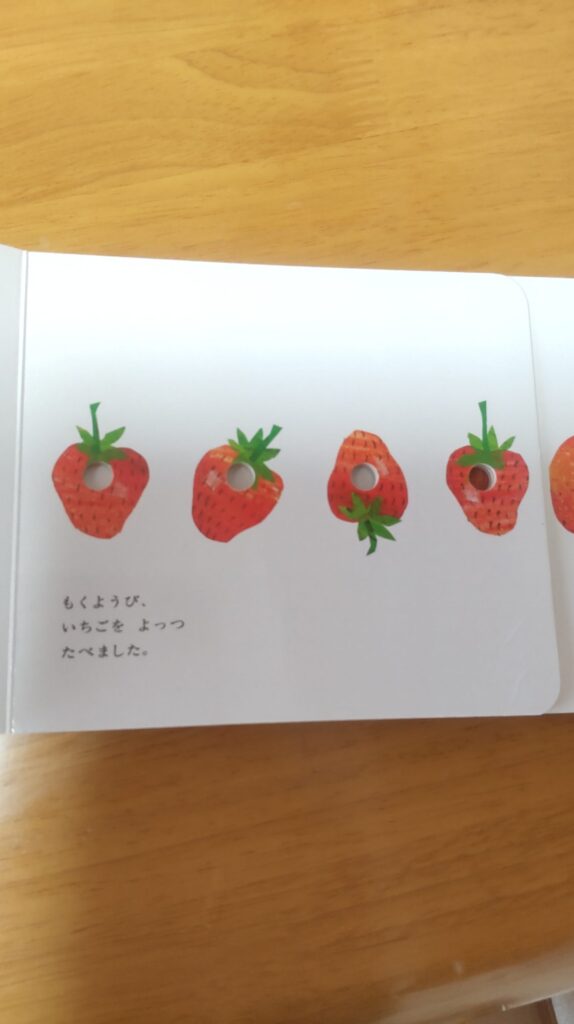 もくようび、
いちごを よっつ
たべました。